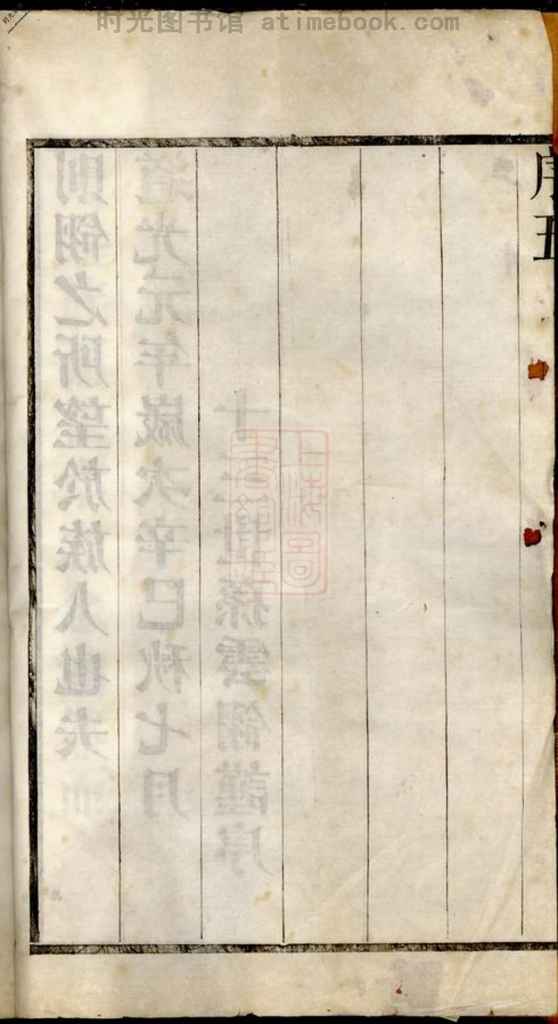 时光图书馆 atimebook.com
序五
則翎之所望於族人也夫
道光元年歲次辛巳秋七月
十世孫雲翎謹序